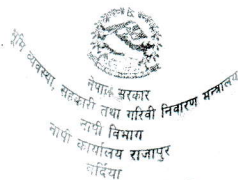 नेपाल सरकार
भूमि व्यवस्था, सहकारी तथा गरिवी निवारण मन्त्रालय
नापी विभाग
नापी कार्यालय राजापुर
वर्दिया